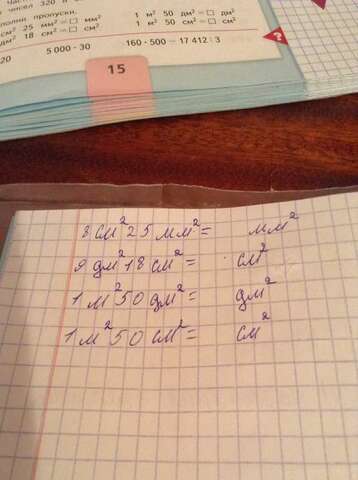 чисел 320 и
полни пропуски.
см² 25 мм² = □ мм²
1 м² 50 дм² = □ дм²
дм² 18 см² = □ см²
1 м² 50 см² = □ см²
20 5 000 · 30 160 · 500 — 17 412 : 3
15
8 см² 25 мм² = мм²
9 дм² 18 см² = см²
1 м² 50 дм² = дм²
1 м² 50 см² = см²